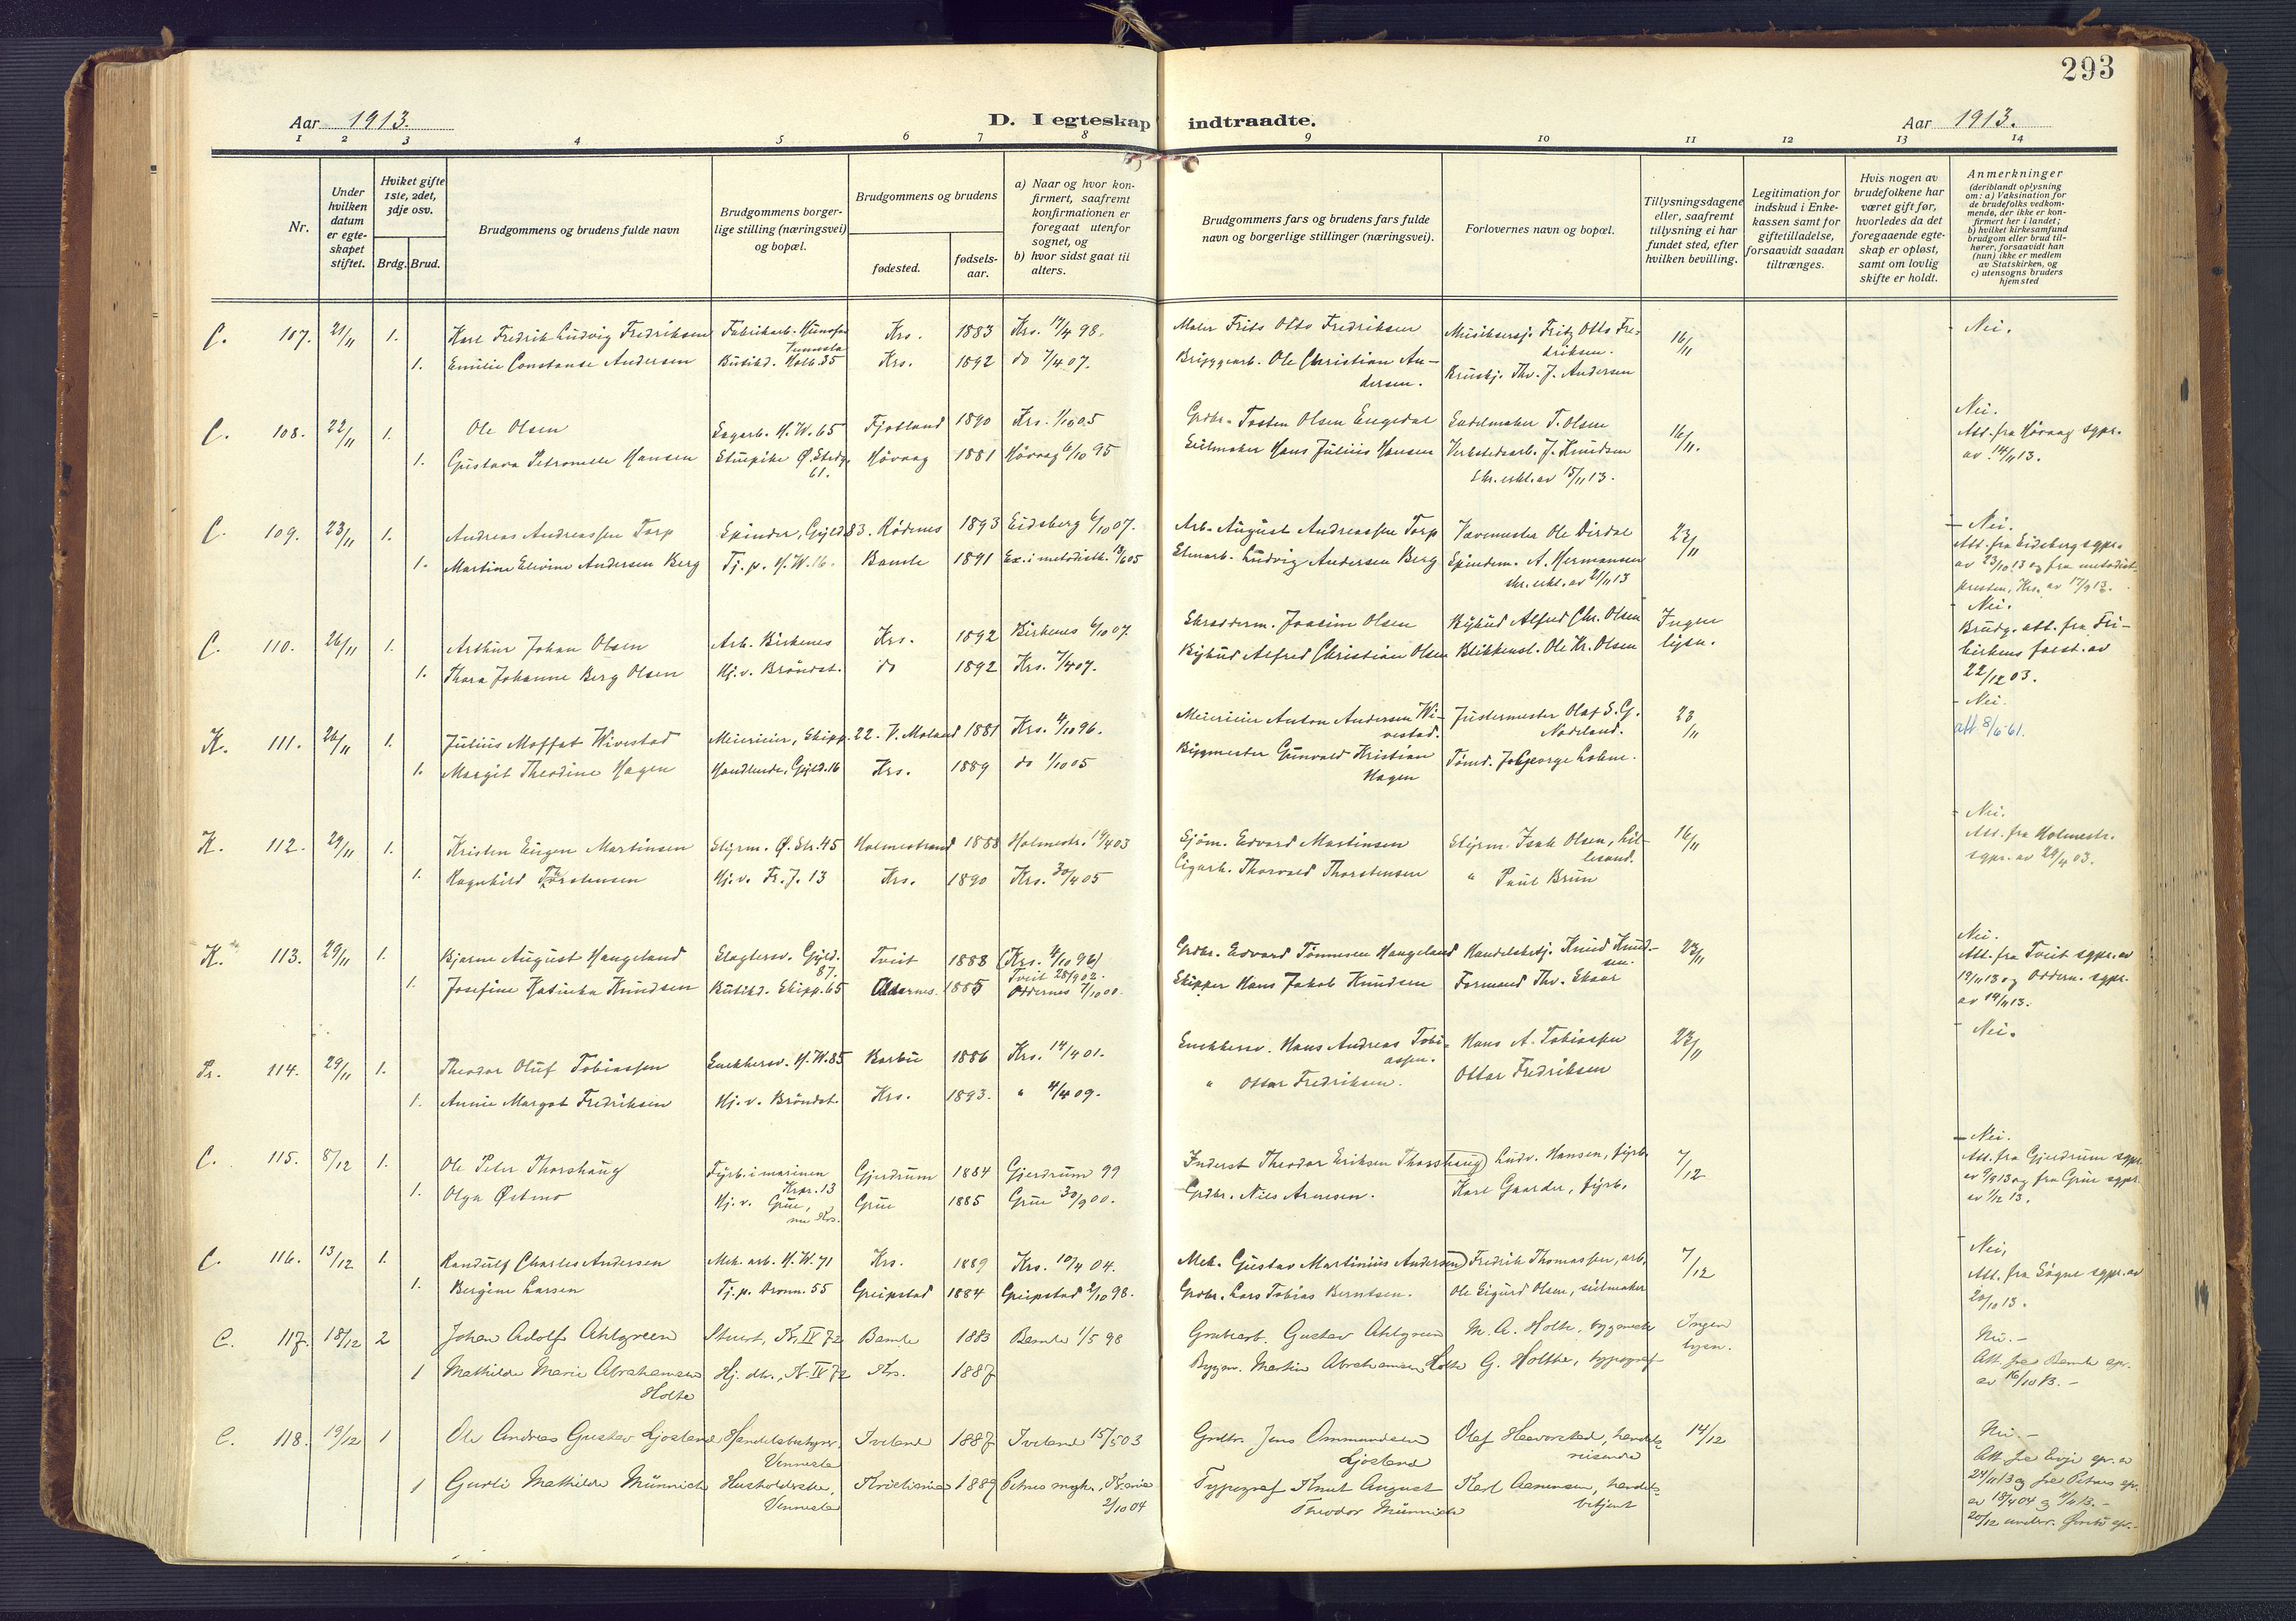 293
Aar 1913. D. I egteskap indtraadte. Aar 1913.
1 2 3 4 5 6 7 8 9 10 11 12 13 14
Nr.
Under hvilken datum er egte-skapet stiftet.
Hviket gifte 1ste, 2det, 3dje osv.
Brdg. Brud.
Brudgommens og brudens fulde navn
Brudgommens borger-lige stilling (næringsvei) og bopæl.
Brudgommens og brudens
fødested.
fødsels-aar.
a) Naar og hvor kon-firmert, saafremt konfirmationen er foregaat utenfor sognet, og
b) hvor sidst gaat til alters.
Brudgommens fars og brudens fars fulde navn og borgerlige stillinger (næringsvei).
Forlovernes navn og bopæl.
Tillysningsdagene eller, saafremt tillysning ei har fundet sted, efter hvilken bevilling.
Legitimation for indskud i Enke-kassen samt for giftetilladelse, forsaavidt saadan tiltrænges.
Hvis nogen av brudefolkene har været gift før, hvorledes da det foregaaende egte-skap er opløst, samt om lovlig skifte er holdt.
Anmerkninger
(deriblandt oplysning om: a) Vaksination for de brudefolks vedkom-mende, der ikke er kon-firmert her i landet; b) hvilket kirkesamfund brudgom eller brud til-hører, forsaavidt han (hun) ikke er medlem av Statskirken, og c) utensogns bruders hjemsted
C. 107. 21/11 1. Karl Fredrik Ludvig Fredriksen Fabrikarb. Hunsfos Vennesla Krs. 1883 Krs. 17/4 98. Maler Frits Otto Fredriksen Musikersj. Fritz Otto Fredriksen. 16/11 Nei.
1. Emilie Constanse Andersen Butikd. Holb. 35 Krs. 1892 do 7/4 07. Bryggearb. Ole Christian Andersen. Bruskj. Thv. J. Andersen
C. 108. 22/11 1. Ole Olsen Sagarb. H.W. 65 Fjotland 1890 Krs. 1/10 05 Grdbr. Tosten Olsen Engedal Sadelmaker T. Olsen 16/11. Nei.
1. Gustava Petronelle Hansen Stuepike Ø. Strdg. 61. Høvaag 1881 Høvag 6/10 95 Seilmaker Hans Julius Hansen Verkstedsarb. J. Knudsen Skr. erkl. av 15/11 13. Att. fra Høvaag sgpr. av 14/11 13.
C. 109. 23/11 1. Andreas Andreassen Torp Spinder, Gyld. 83. Rødenes 1893 Eidsberg 6/10 07. Arb. August Andreassen Torp Vævemester Ole Dirdal 23/11 Nei.
1. Martine Elvine Andersen Berg Tj. p. H.W. 16. Bamle 1891 Ex. i metodistk. 18/6 05 Stenarb. Ludvig Andersen Berg Spindem. A. Hermansen skr. erkl. av 21/11 13 Att. fra Eidsberg sgpr. av 23/10 13 og fra metodist-presten, Krs. av 17/9 13.
C. 110. 26/11 1. Arthur Johan Olsen Arb. Birkenes Krs. 1892 Birkenes 6/10 07. Skrædderm. Joacim Olsen Bybud Alfred Chr. Olsen Ingen lysn. Nei.
1. Thora Johanne Berg Olsen Hj. v. Brøndst. do 1892 Krs. 7/4 07. Bybud Alfred Christian Olsen Blikkensl. Ole Kr. Olsen Brudg. att. fra Fri-kirkens forst. av 22/12 03.
K. 111. 26/11 1. Julius Moffat Wivestad Meierieier, Skipp. 22. V. Moland 1881 Krs. 4/10 96. Meierieier Anton Andersen Wivestad. Justermester Olaf S. G. Nodeland. 23/11 Nei.
1. Margit Theodine Hagen Handlende, Gyld. 16 Krs. 1889 do 1/10 05 Bygmester Gunvald Kristian Hagen Tømd. George Lohne. att. 8/6 61.
K. 112. 29/11 1. Kristen Eugen Martinsen Styrm. Ø. Str. 45 Holmestrand 1888 Holmestr. 19/4 03 Sjøm. Edvard Martinsen Styrm. Isak Olsen, Lillesand. 16/11 Nei.
1. Ragnhild Torstensen Hj. v. Fr. J. 13 Krs. 1890 Krs. 30/4 05 Cigarh. Thorvald Thorstensen " Paul Brun Att. fra Holmestr. sgpr. av 29/4 03.
K. 113. 29/11 1. Bjarne August Haugeland Slagtersv. Gyld. 87. Tveit 1888 (Krs. 4/10 96) Tveit 28/9 02. Grdbr. Edvard Tønnesen Haugeland Handelsbetj. Knud Knudsen. 23/11 Nei.
1. Josefine Katinka Knudsen Butikd. Skipp. 65 Oddernes. 1885 Oddernes 7/10 00. Skipper Hans Jakob Knudsen Formand Thv. Skaar Att. fra Tveit sgpr. av 19/11 13 og Oddern. sgpr. av 14/11 13.
Pr. 114. 29/11 1. Theodor Oluf Tobiassen Snekkersv. H.W. 85 Barbu 1886 Krs. 14/4 01. Snekkersv. Hans Andreas Tobiassen. Hans A. Tobiassen 23/11 Nei.
1. Annie Margot Fredriksen Hj. v. Brøndst. Krs. 1893. " 4/4 09. " Ottar Fredriksen. Ottar Fredriksen
C. 115. 8/12 1. Ole Peter Thorshaug Fyrb. i marinen Krpr. 13 Gjerdrum 1884 Gjerdrum 99 Inderst Theodor Eriksen Thorshaug Ludv. Hansen, fyrb. 7/12 Nei.
1. Olga Østmo Hj. v. Grue, nu Krs. Grue 1885 Grue 30/9 00. Grdbr. Niels Arnesen. Karl Gaarder, fyrb. Att. fra Gjerdrum sgpr. av 9/8 13 og fra Grue sgpr. av 1/12 13.
C. 116. 13/12 1. Randulf Charles Andersen Mek. arb. H.W. 71 Krs. 1889 Krs. 10/4 04. Mek. Gustav Martinius Andersen Fredrik Thomassen, arb. 7/12 Nei,
1. Bergine Larsen Tj. p. Dronn. 55 Greipstad 1884 Greipstad 2/10 98. Grdbr. Lars Tobias Berntsen. Ole Sigurd Olsen, seilmaker Att. fra Søgne sgpr. av 20/10 13.
C. 117. 18/12 2 Johan Adolf Ahlgreen Stuert, K. IV 72 Bamle 1883 Bamle 1/5 98 Grubearb. Gustav Ahlgreen M. A. Holte, bygmester Ingen lysn. Nei.-
1 Mathilde Marie Abrahamsen Holte Hj. dtr., K. IV 72 Krs. 1887 Byggm. Martin Abrahamsen Holte G. Holthe, typograf Att. fra Bamle spr. av 16/10 13.-
C. 118. 19/12 1 Ole Andreas Gustav Ljosland Handelsbestyrer, Vennesla Iveland 1887 Iveland 15/5 03 Grdbr. Jens Ommundsen Ljosland Olaf Haavorstad, handelsreisende 14/12 Nei.-
1 Gurli Mathilde Münnich Husholderske, Vennesla Kristiania 1889 Petrus mgh., Kr.ania 2/10 04 Typograf Knut August Theodor Münnich Karl Aanensen, handelsbetjent Att. fra Evje spr. av 24/11 13 og fra Petrus spr. av 18/4 04 og 11/11 13.-
20/12 underr. spr.-